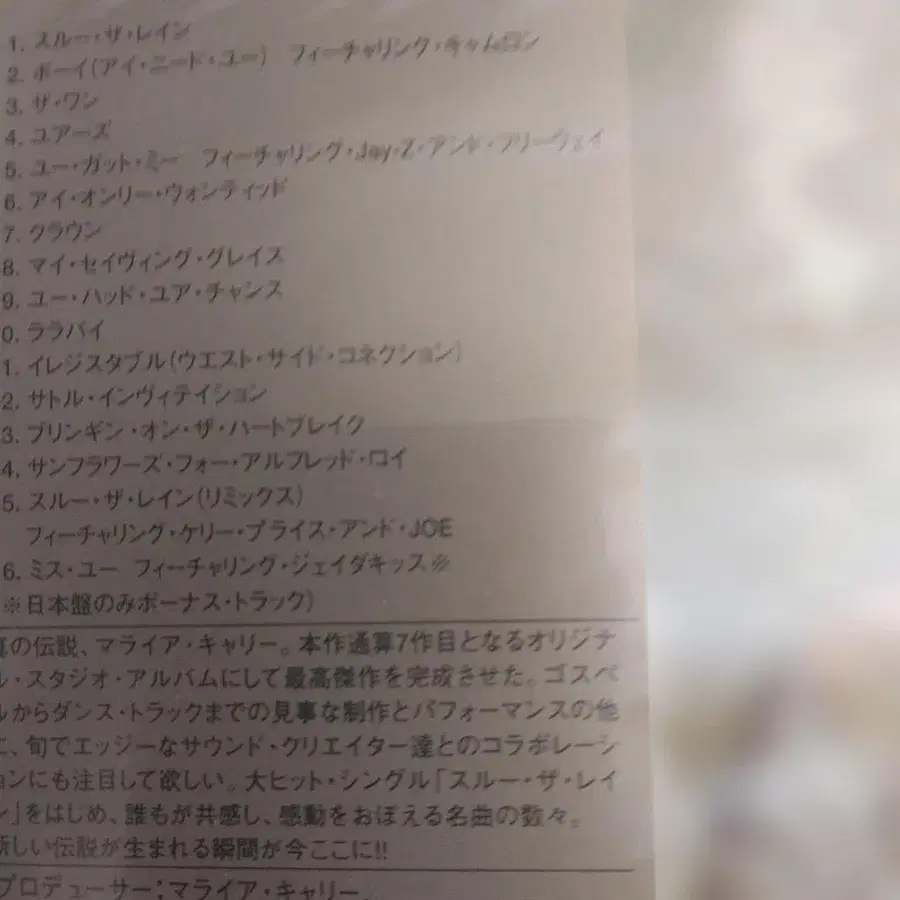 1. スルー・ザ・レイン
2. ボーイ(アイ・ニード・ユー) フィーチャリング・キャムロン
3. ザ・ワン
4. ユアーズ
5. ユー・ガット・ミー フィーチャリング・Jay-Z・アンド・フリーウェイ
6. アイ・オンリー・ウォンティッド
7. クラウン
8. マイ・セイヴィング・グレイス
9. ユー・ハッド・ユア・チャンス
0. ララバイ
1. イレジスタブル(ウエスト・サイド・コネクション)
2. サトル・インヴィテイション
3. ブリンギン・オン・ザ・ハートブレイク
4. サンフラワーズ・フォー・アルフレッド・ロイ
5. スルー・ザ・レイン(リミックス)
フィーチャリング・ケリー・プライス・アンド・JOE
6. ミス・ユー フィーチャリング・ジェイダキッス※
※日本盤のみボーナス・トラック)
真の伝説、マライア・キャリー。本作通算7作目となるオリジナ
ル・スタジオ・アルバムにして最高傑作を完成させた。ゴスペ
ルからダンス・トラックまでの見事な制作とパフォーマンスの他
に、旬でエッジーなサウンド・クリエイター達とのコラボレーシ
ョンにも注目して欲しい。大ヒット・シングル「スルー・ザ・レイ
ン」をはじめ、誰もが共感し、感動をおぼえる名曲の数々。
新しい伝説が生まれる瞬間が今ここに!!
プロデューサー:マライア・キャリー